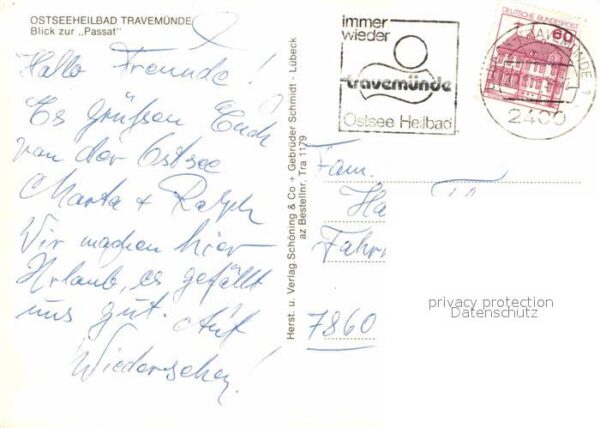 OSTSEEHEILBAD TRAVEMÜNDE
Blick zur „Passat"
Hallo Freunde!
Es grüßen Euch
von der Ostsee
Marta + Ralph
Wir machen hier
Urlaub, es gefällt
uns gut. Auf
Wiedersehen!
Herst. u. Verlag Schöning & Co + Gebrüder Schmidt - Lübeck
az Bestellnr. Tra 1179
immer
wieder
travemünde
Ostsee Heilbad
DEUTSCHE BUNDESPOST
60
TRAVEMÜNDE 1
2400
Fam.
Ha
Fahr
7860
privacy protection
Datenschutz